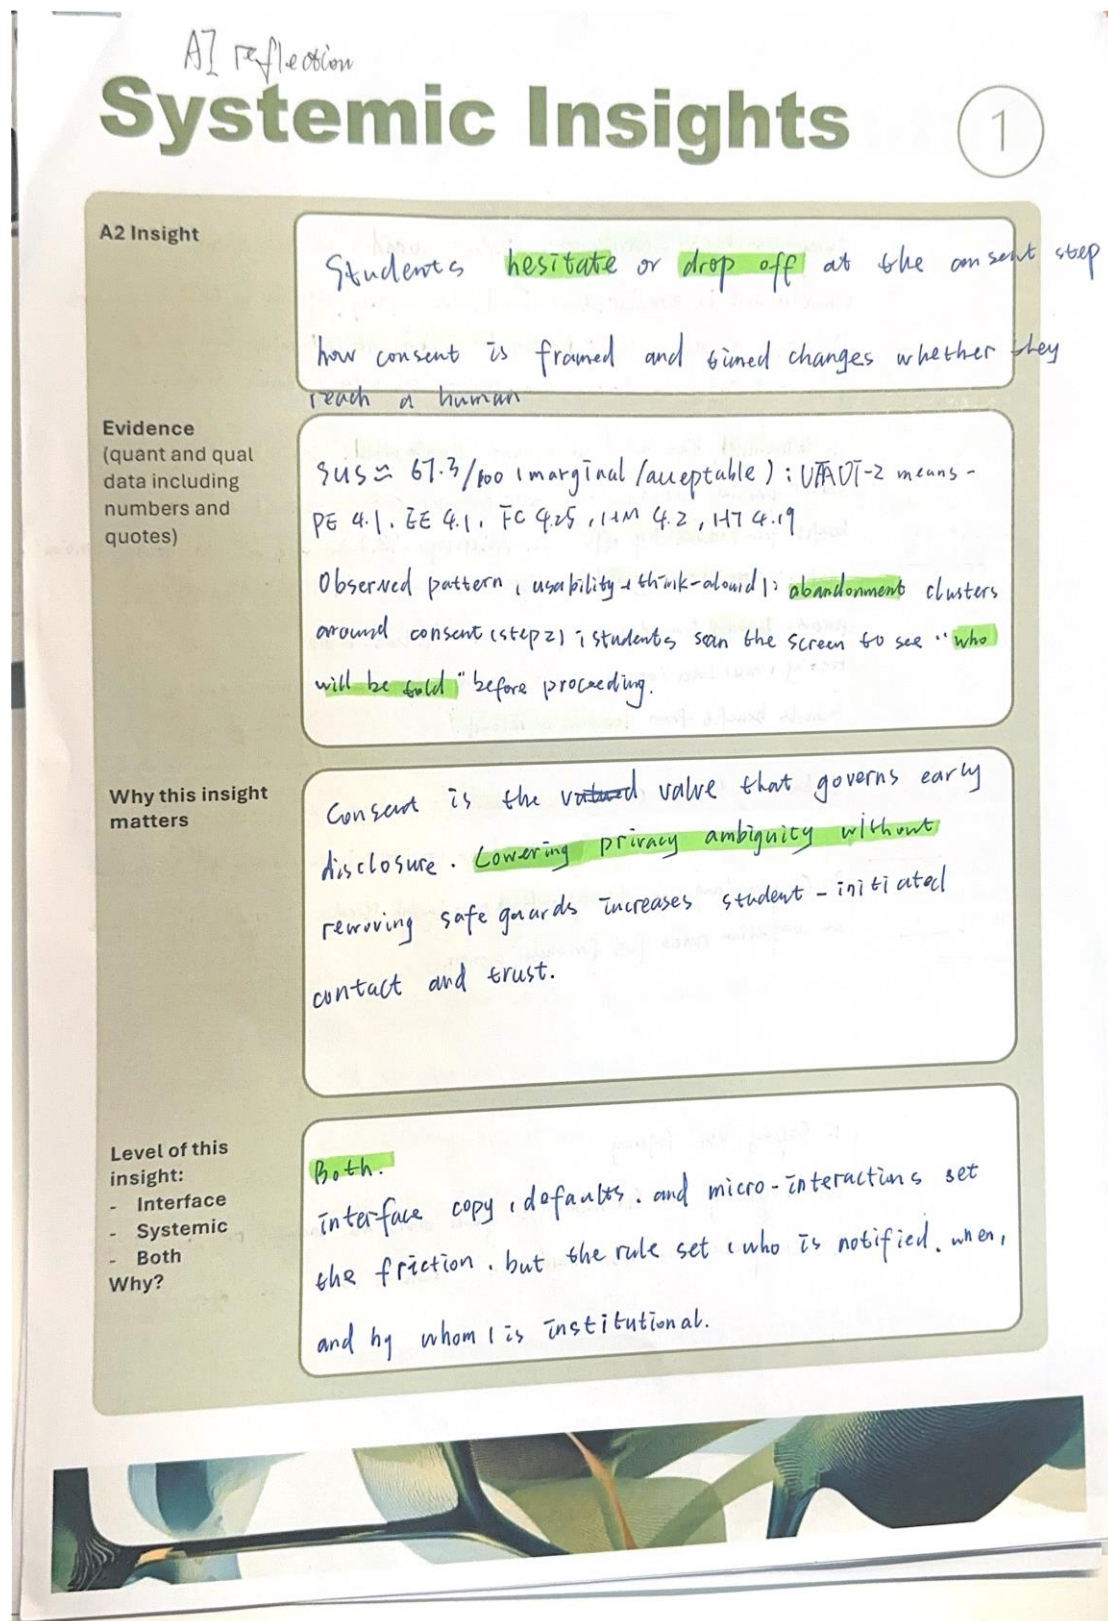 AI reflection
Systemic Insights
1
A2 Insight
Students hesitate or drop off at the consent step
how consent is framed and timed changes whether they
reach a human
Evidence
(quant and qual
data including
numbers and
quotes)
SUS ≈ 67.3/100 (marginal/acceptable); UTAUT-2 means -
PE 4.1, EE 4.1, FC 4.25, HM 4.2, HT 4.19
Observed pattern (usability + think-aloud): abandonment clusters
around consent (step 2); students scan the screen to see "who
will be told" before proceeding.
Why this insight
matters
Consent is the valve that governs early
disclosure. Lowering privacy ambiguity without
removing safe guards increases student-initiated
contact and trust.
Level of this
insight:
- Interface
- Systemic
- Both
Why?
Both.
interface copy, defaults, and micro-interactions set
the friction, but the rule set (who is notified, when,
and by whom) is institutional.